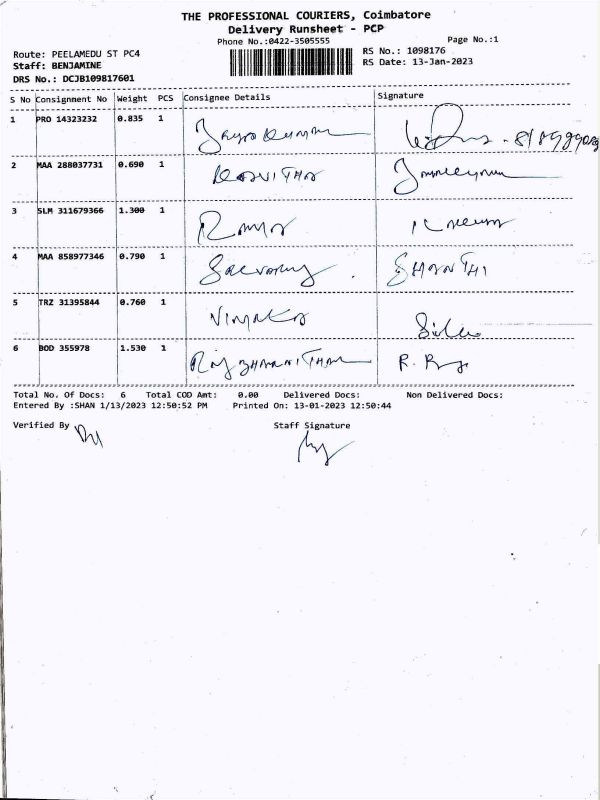 THE PROFESSIONAL COURIERS, Coimbatore
Delivery Runsheet - PCP
Phone No.:0422-3505555 Page No.:1
Route: PEELAMEDU ST PC4 RS No.: 1098176
Staff: BENJAMINE RS Date: 13-Jan-2023
DRS No.: DCJB109817601
S No Consignment No Weight PCS Consignee Details Signature
1 PRO 14323232 0.835 1 Jayakumar
2 MAA 288037731 0.690 1 KAVITHA
3 SLM 311679366 1.300 1 Ramya
4 MAA 858977346 0.790 1 SHANTHI
5 TRZ 31395844 0.760 1
6 BOD 355978 1.530 1
Total No. Of Docs: 6 Total COD Amt: 0.00 Delivered Docs: Non Delivered Docs:
Entered By :SHAN 1/13/2023 12:50:52 PM Printed On: 13-01-2023 12:50:44
Verified By Staff Signature